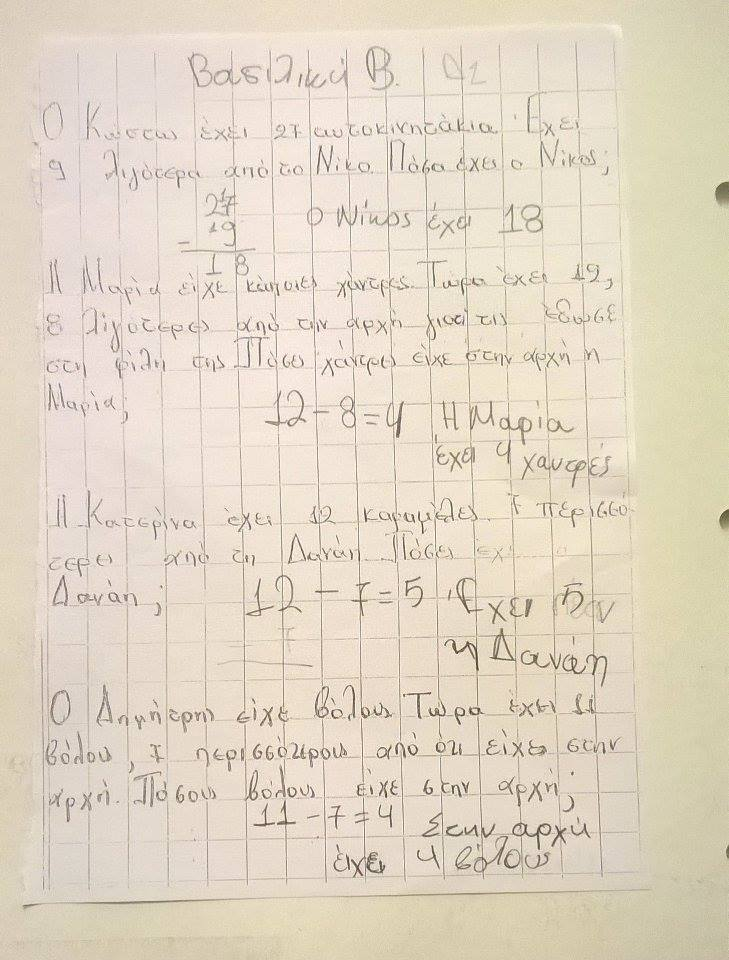 Βασιλική Β.
Ο Κώστας έχει 27 αυτοκινητάκια. Έχει
9 λιγότερα από το Νίκο. Πόσα έχει ο Νίκος;
27
- 19
18
Ο Νίκος έχει 18
Η Μαρία είχε κάποιες χάντρες. Τώρα έχει 12,
8 λιγότερες από την αρχή γιατί τις έδωσε
στη φίλη της. Πόσες χάντρες είχε στην αρχή η
Μαρία;
12 - 8 = 4 Η Μαρία
έχει 4 χαντρές
Η Κατερίνα έχει 12 καραμέλες. 7 περισσό
τερες από τη Δανάη. Πόσες έχει η
Δανάη;
12 - 7 = 5 Έχει 5
η Δανάη
Ο Δημήτρης είχε βόλους. Τώρα έχει 11
βόλους, 7 περισσότερους από ότι είχε στην
αρχή. Πόσους βόλους είχε στην αρχή;
11 - 7 = 4 Στην αρχή
έιχε 4 βόλους